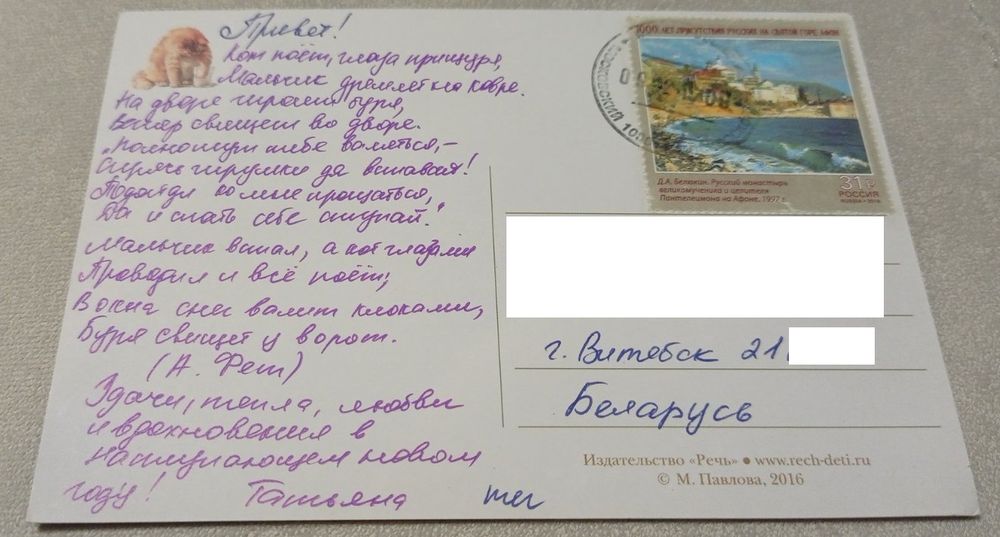 Привет!
Кот поёт, глаза прищуря,
Мальчик дремлет на ковре.
На дворе играет буря,
Ветер свищет во дворе.
„Полно тут тебе валяться,–
Спрячь игрушки да вставай!
Подойди ко мне прощаться,
Да и спать себе ступай."
Мальчик встал, а кот глазами
Проводил и всё поёт;
В окна снег валит клоками,
Буря свищет у ворот.
(А. Фет)
Удачи, тепла, любви
и вдохновения в
наступающем новом
году! Татьяна тег
1000 ЛЕТ ПРИСУТСТВИЯ РУССКИХ НА СВЯТОЙ ГОРЕ АФОН
Д.А. Белюкин. Русский монастырь
великомученика и целителя
Пантелеимона на Афоне, 1997 г.
31 ₽
РОССИЯ
RUSSIA • 2016
г. Витебск 21
Беларусь
Издательство «Речь» • www.rech-deti.ru
© М. Павлова, 2016